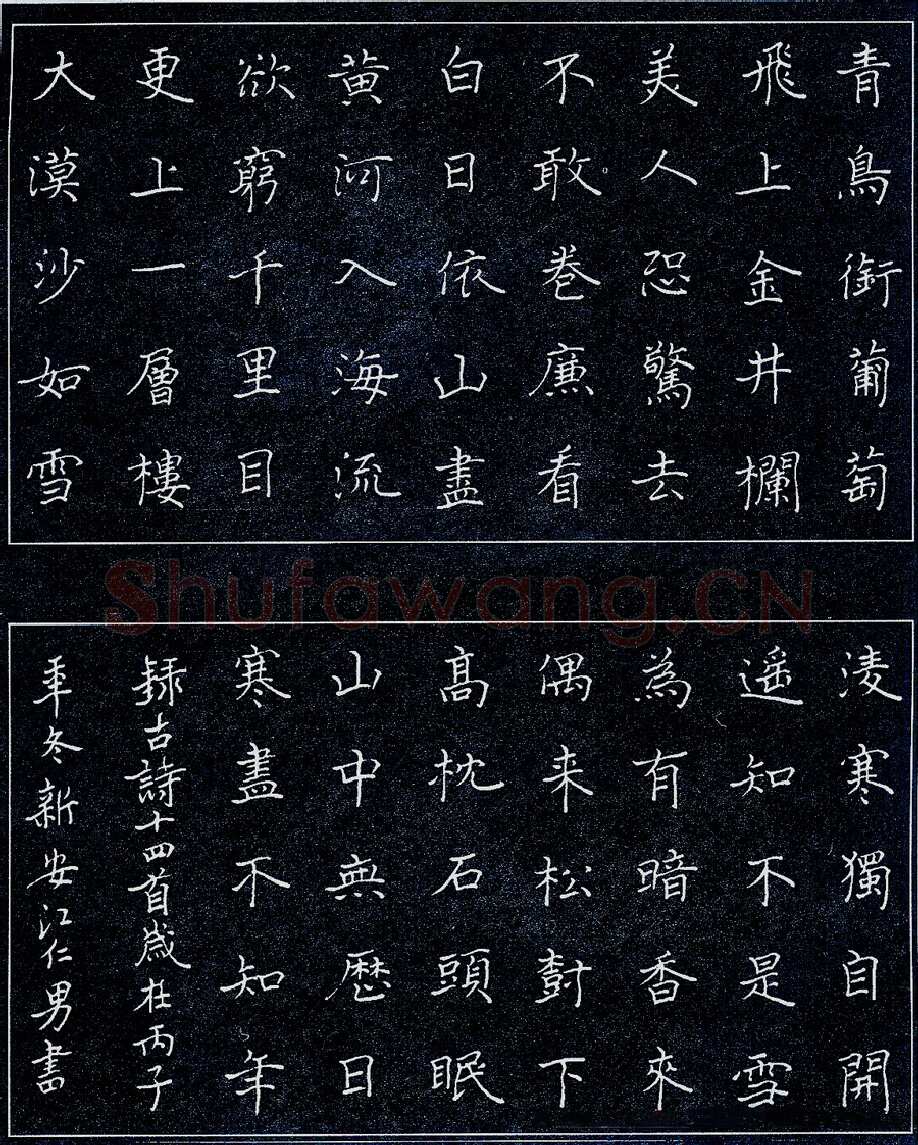 青鳥銜葡萄
飛上金井欄
美人恐驚去
不敢卷廉看
白日依山盡
黃河入海流
欲窮千里目
更上一層樓
大漠沙如雪
Shufawang.CN
淩寒獨自開
遥知不是雪
為有暗香來
偶来松樹下
高枕石頭眠
山中無歷日
寒盡不知年
録古詩十四首歲在丙子
年冬新安江仁男書